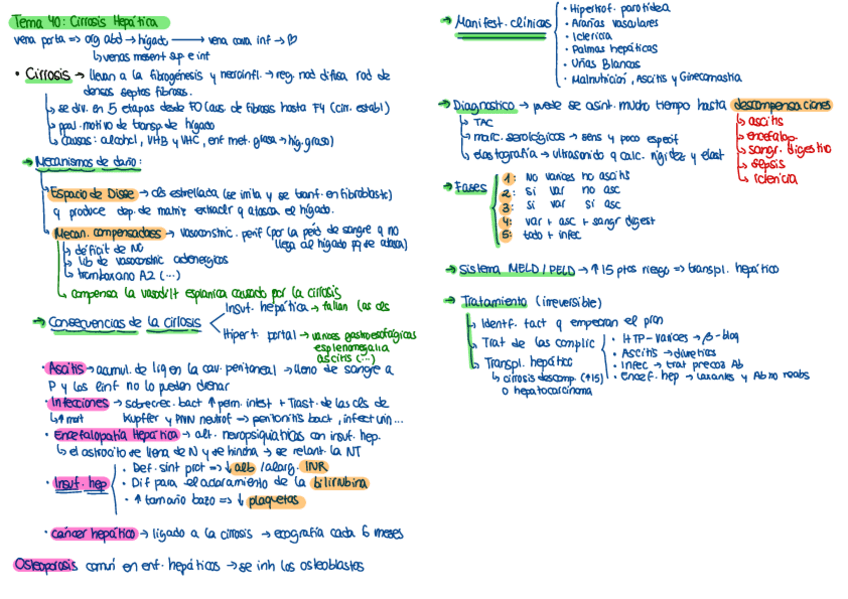 Tema 40: Cirrosis Hepática
vena porta => org abd → hígado → vena cava inf →
↳ venas mesent sup e int
• Cirrosis → llevan a la fibrogénesis y necroinfl. → reg. nod difusa rod de
densos septos fibrosos.
↳ se div. en 5 etapas desde F0 (aus. de fibrosis hasta F4 (cirr. establ)
↳ ppal. motivo de transp. de hígado
↳ causas: alcohol, VHB y VHC, enf met. grasa → híg. graso)
→ Mecanismos de daño:
Espacio de Disse → cls estrellada (se irrita y se tranf. en fibroblasto)
q produce dep. de matriz extracelr q atasca el hígado.
Mecan. compensadores → vasoconstric. perif (por la perd de sangre q no
llega al hígado pq se atasca)
↳ déficit de NO
↳ lib de vasoconstric adrenergicos
↳ tromboxano A2 (...)
↳ compensa la vasodilt esplanica causado por la cirrosis
→ Consecuencias de la cirrosis
Insuf. hepática → fallan las cls
Hipert. portal → varices gastroesofágicas
esplenomegalia
ascitis (...)
• Ascitis → acumul. de liq en la cav. peritoneal → lleno de sangre a
P y los linf no lo pueden drenar
• Infecciones → sobrecrec. bact ↑ perm. intest + Trast. de las cls de
↳ ↑ mort Kupffer y PMN neutrof → peritonitis bact, infect urin...
• Encefalopatía Hepática → alt. neuropsiquiatricas con insuf. hep.
↳ el astrocito se llena de N y se hincha → se relant. la NT
• Insuf. hep
• Def. sint prot => ↓ alb / alarg. INR
• Dif para el aclaramiento de la bilirrubina
• ↑ tamaño bazo => ↓ plaquetas
• cáncer hepático → ligado a la cirrosis → ecografía cada 6 meses
Osteoporosis común en enf. hepáticos → se inh los osteoblastos
→ Manifest. clínicas
• Hipertrof. parotídea
• Arañas vasculares
• Ictericia
• Palmas hepáticas
• Uñas Blancas
• Malnutrición, Ascitis y Ginecomastia
→ Diagnostico → puede se asint. mucho tiempo hasta descompensaciones
↳ TAC
↳ marc. serológicos → sens y poco especif
↳ elastografía → ultrasonido q calc. rigidez y elast
↳ ascitis
↳ encefalop.
↳ sangr. digestivo
↳ sepsis
↳ ictericia
→ Fases
1: No varices no ascitis
2: Si var no asc
3: Si var si asc
4: var + asc + sangr digest
5: todo + infec
→ Sistema MELD / PELD → ↑ 15 ptos riesgo => transpl. hepático
→ Tratamiento (irreversible)
↳ Identf. fact q empeoran el pron
↳ Trat de las complic
• HTP - varices → β-bloq
• Ascitis → diureticos
• Infec → trat precoz Ab
• Encef. hep → laxantes y Ab no reabs
↳ Transpl. hepático
↳ cirrosis descomp. (↑15)
o hepatocarcinoma